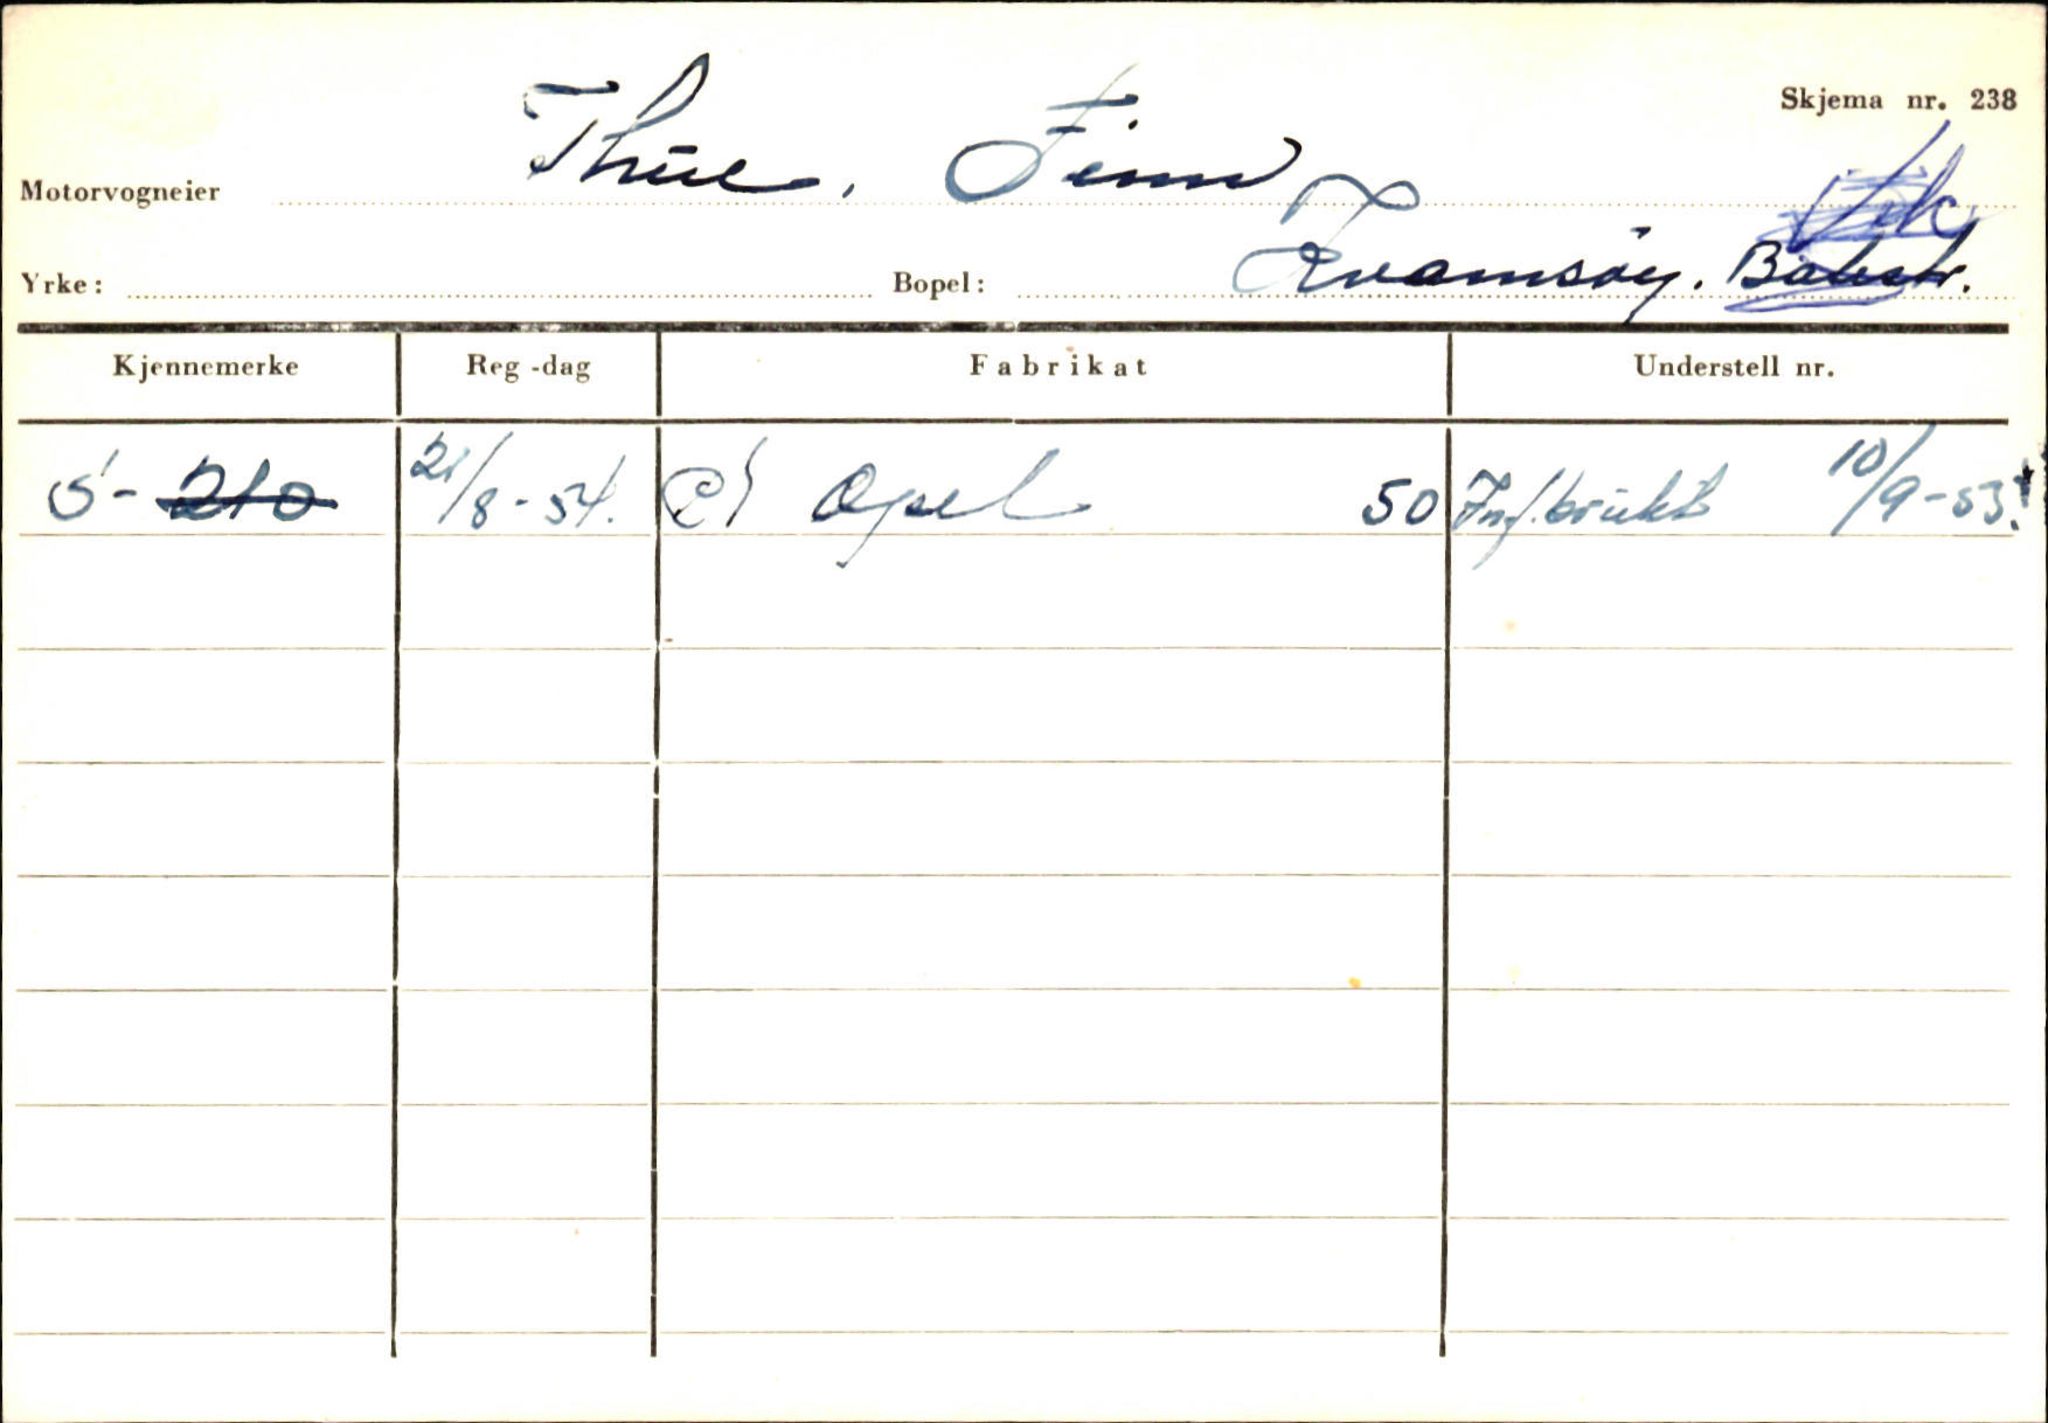 Skjema nr. 238
Motorvogneier Thue, Finn
Vik
Yrke: Bopel: Kvamsøy. Balestr.
Kjennemerke Reg-dag Fabrikat Understell nr.
S- 210 21/8-54. P) Opel 50 Innf. brukt 10/9-53.!